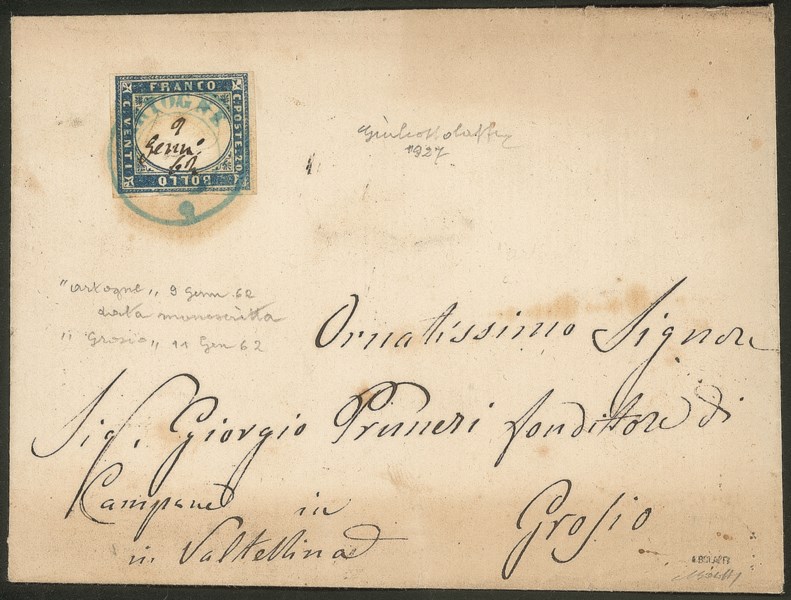 FRANCO
C. POSTE 20
BOLLO
C. VENTI
9
Genn.
62
1927
"artogne" 9 Genn 62
data manoscritta
"Grosio" 11 Gen 62
Ornatissimo Signore
Sig. Giorgio Pruneri fonditore di
Campane in
in Valtellina
Grosio